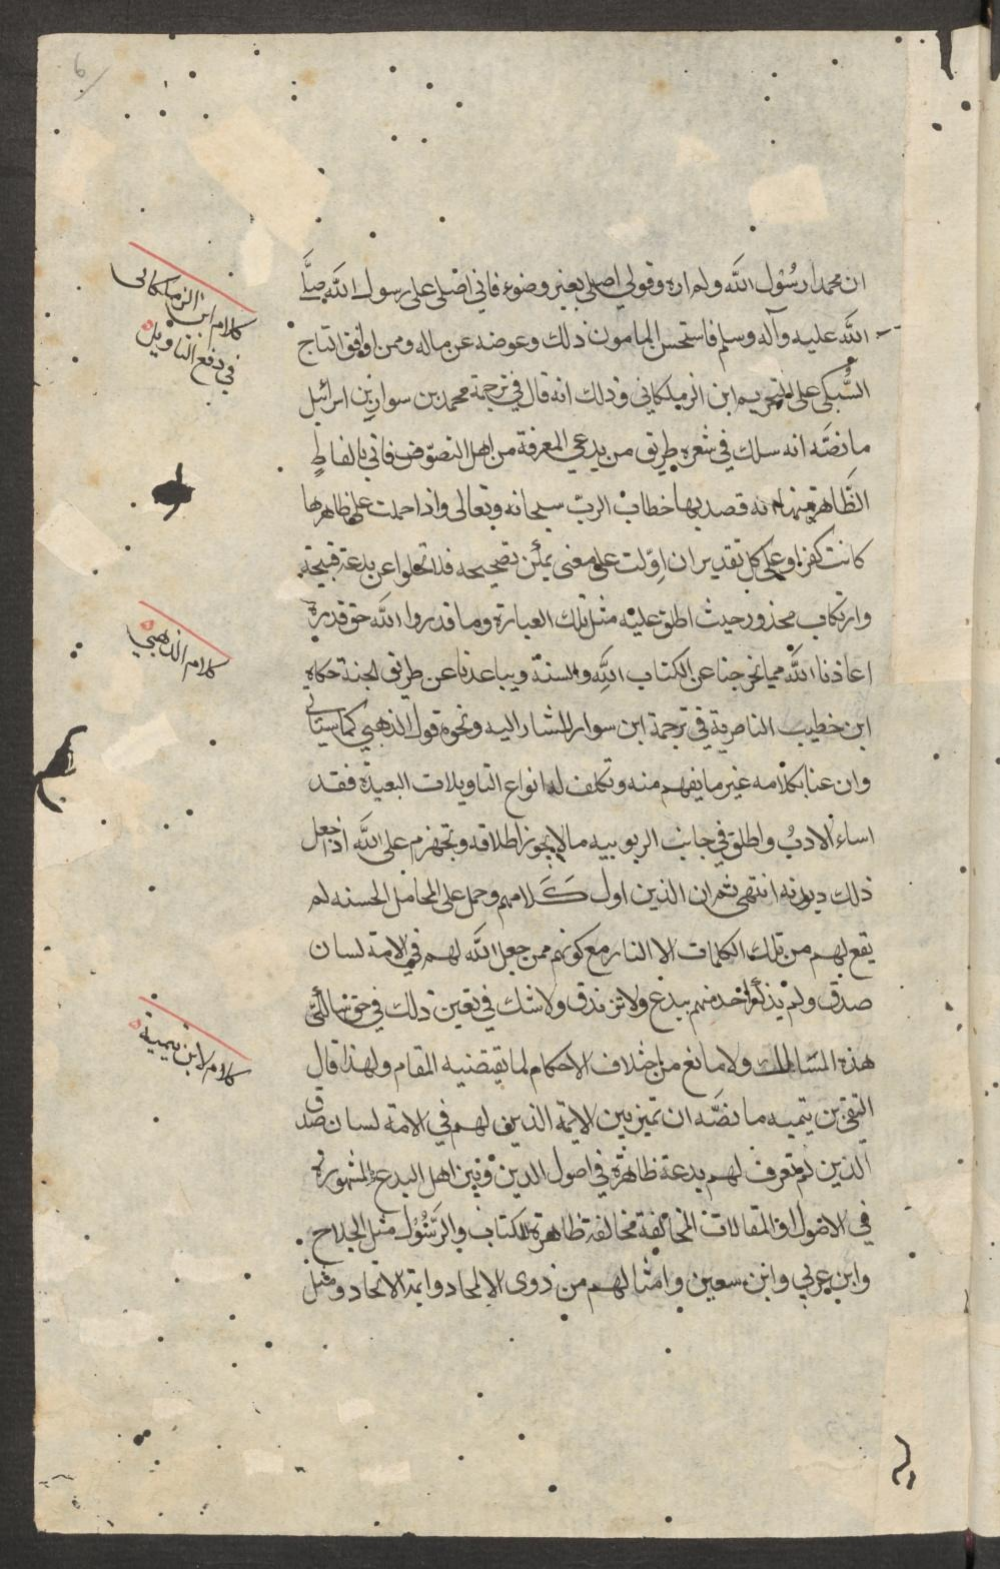 ٦
ان محمدا رسول الله ولم اره وقولي اصلي بغير وضوء فاني اصلي على رسول الله صلى
الله عليه وآله وسلم فاستحسن المامون ذلك وعوضه عن ماله وممن وافق التاج
السبكي على التحريم ابن الزملكاني وذلك انه قال في ترجمة محمد بن سوار بن اسرائيل
ما نصه انه سلك في شعره طريق من يدعي المعرفة من اهل التصوف فاتى بالفاظ
الظاهر منها انه قصد بها خطاب الرب سبحانه وتعالى واذا حملت على ظاهرها
كانت كفرا وعلى كل تقدير ان اولت على معنى يمكن تصحيحه فلا تخلوا عن بدعة قبيحة
وارتكاب محذور حيث اطلق عليه مثل تلك العبارة وما قدروا الله حق قدره
اعاذنا الله مما يخرجنا عن الكتاب الله والسنة ويباعدنا عن طريق الجنة حكاه
ابن خطيب الناصرية في ترجمة ابن سوار المشار اليه ونحوه قول الذهبي كما سياتي
وان عنا بكلامه غير ما يفهم منه وتكلف له انواع التاويلات البعيدة فقد
اساء الادب واطلق في جانب الربوبيه ما لا يجوز اطلاقه وتجهرم على الله اذ جعل
ذلك ديدنه انتهى ثم ان الذين اول كلامهم وحمل على المحامل الحسنه لم
يقع لهم من تلك الكلمات الا النار مع كونهم ممن جعل الله لهم في الامة لسان
صدق ولم يذكر احد منهم ببدع ولا تزندق ولا شك في تعين ذلك في حق سالكي
هذه المسالك ولا مانع من اختلاف الاحكام لما يقتضيه المقام ولهذا قال
التقي بن تيميه ما نصه ان تميز بين الايمة الذين لهم في الامة لسان صدق
الذين لم تعرف لهم بدعة ظاهرة في اصول الدين وبين اهل البدع المشهورة
في الاصول والمقالات المخالفة مخالفة ظاهرة للكتاب والرسول مثل الحلاج
وابن عربي وابن سبعين وامثالهم من ذوى الالحاد وايمة الاتحاد ومثل
كلام ابن الزملكاني
في دفع التاويل
كلام الذهبي
كلام لابن تيمية